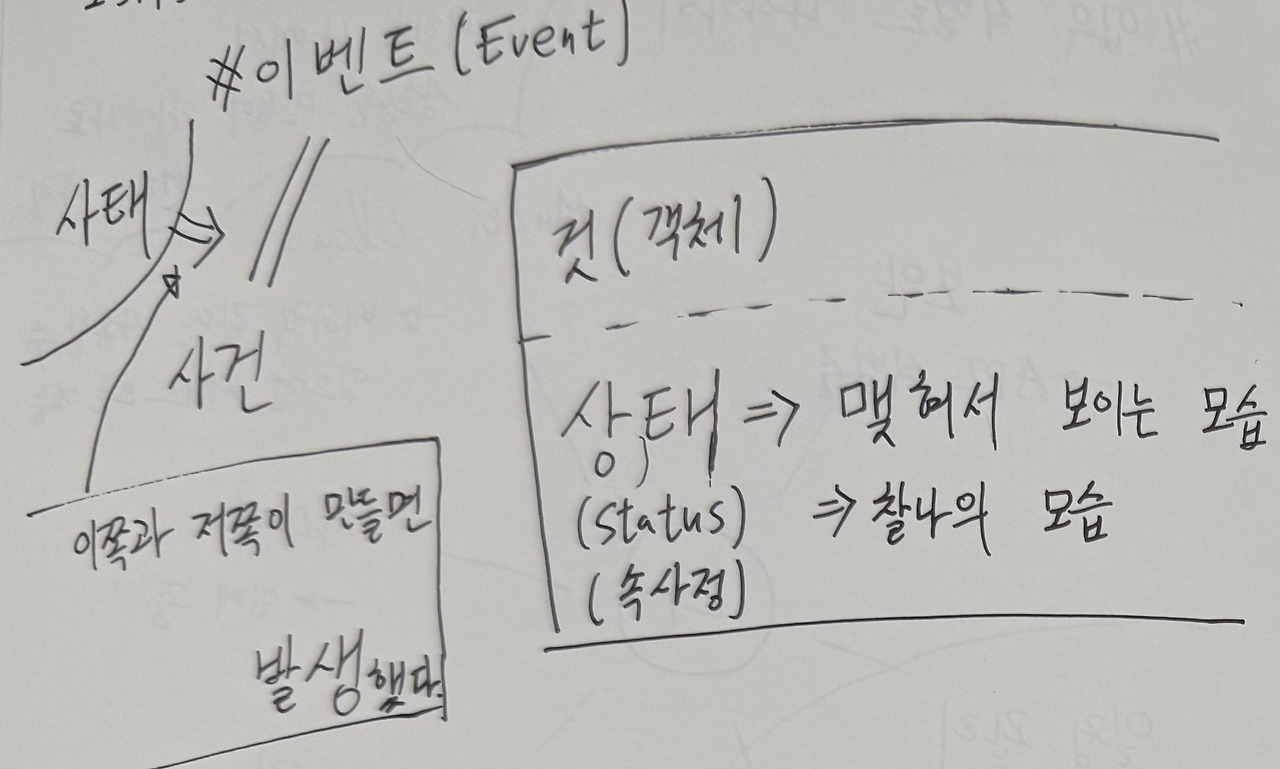 #이벤트(Event)
사태
사건
이쪽과 저쪽이 만들면
발생했다.
것(객체)
상태 => 맺혀서 보이는 모습
(status) => 찰나의 모습
(속사정)